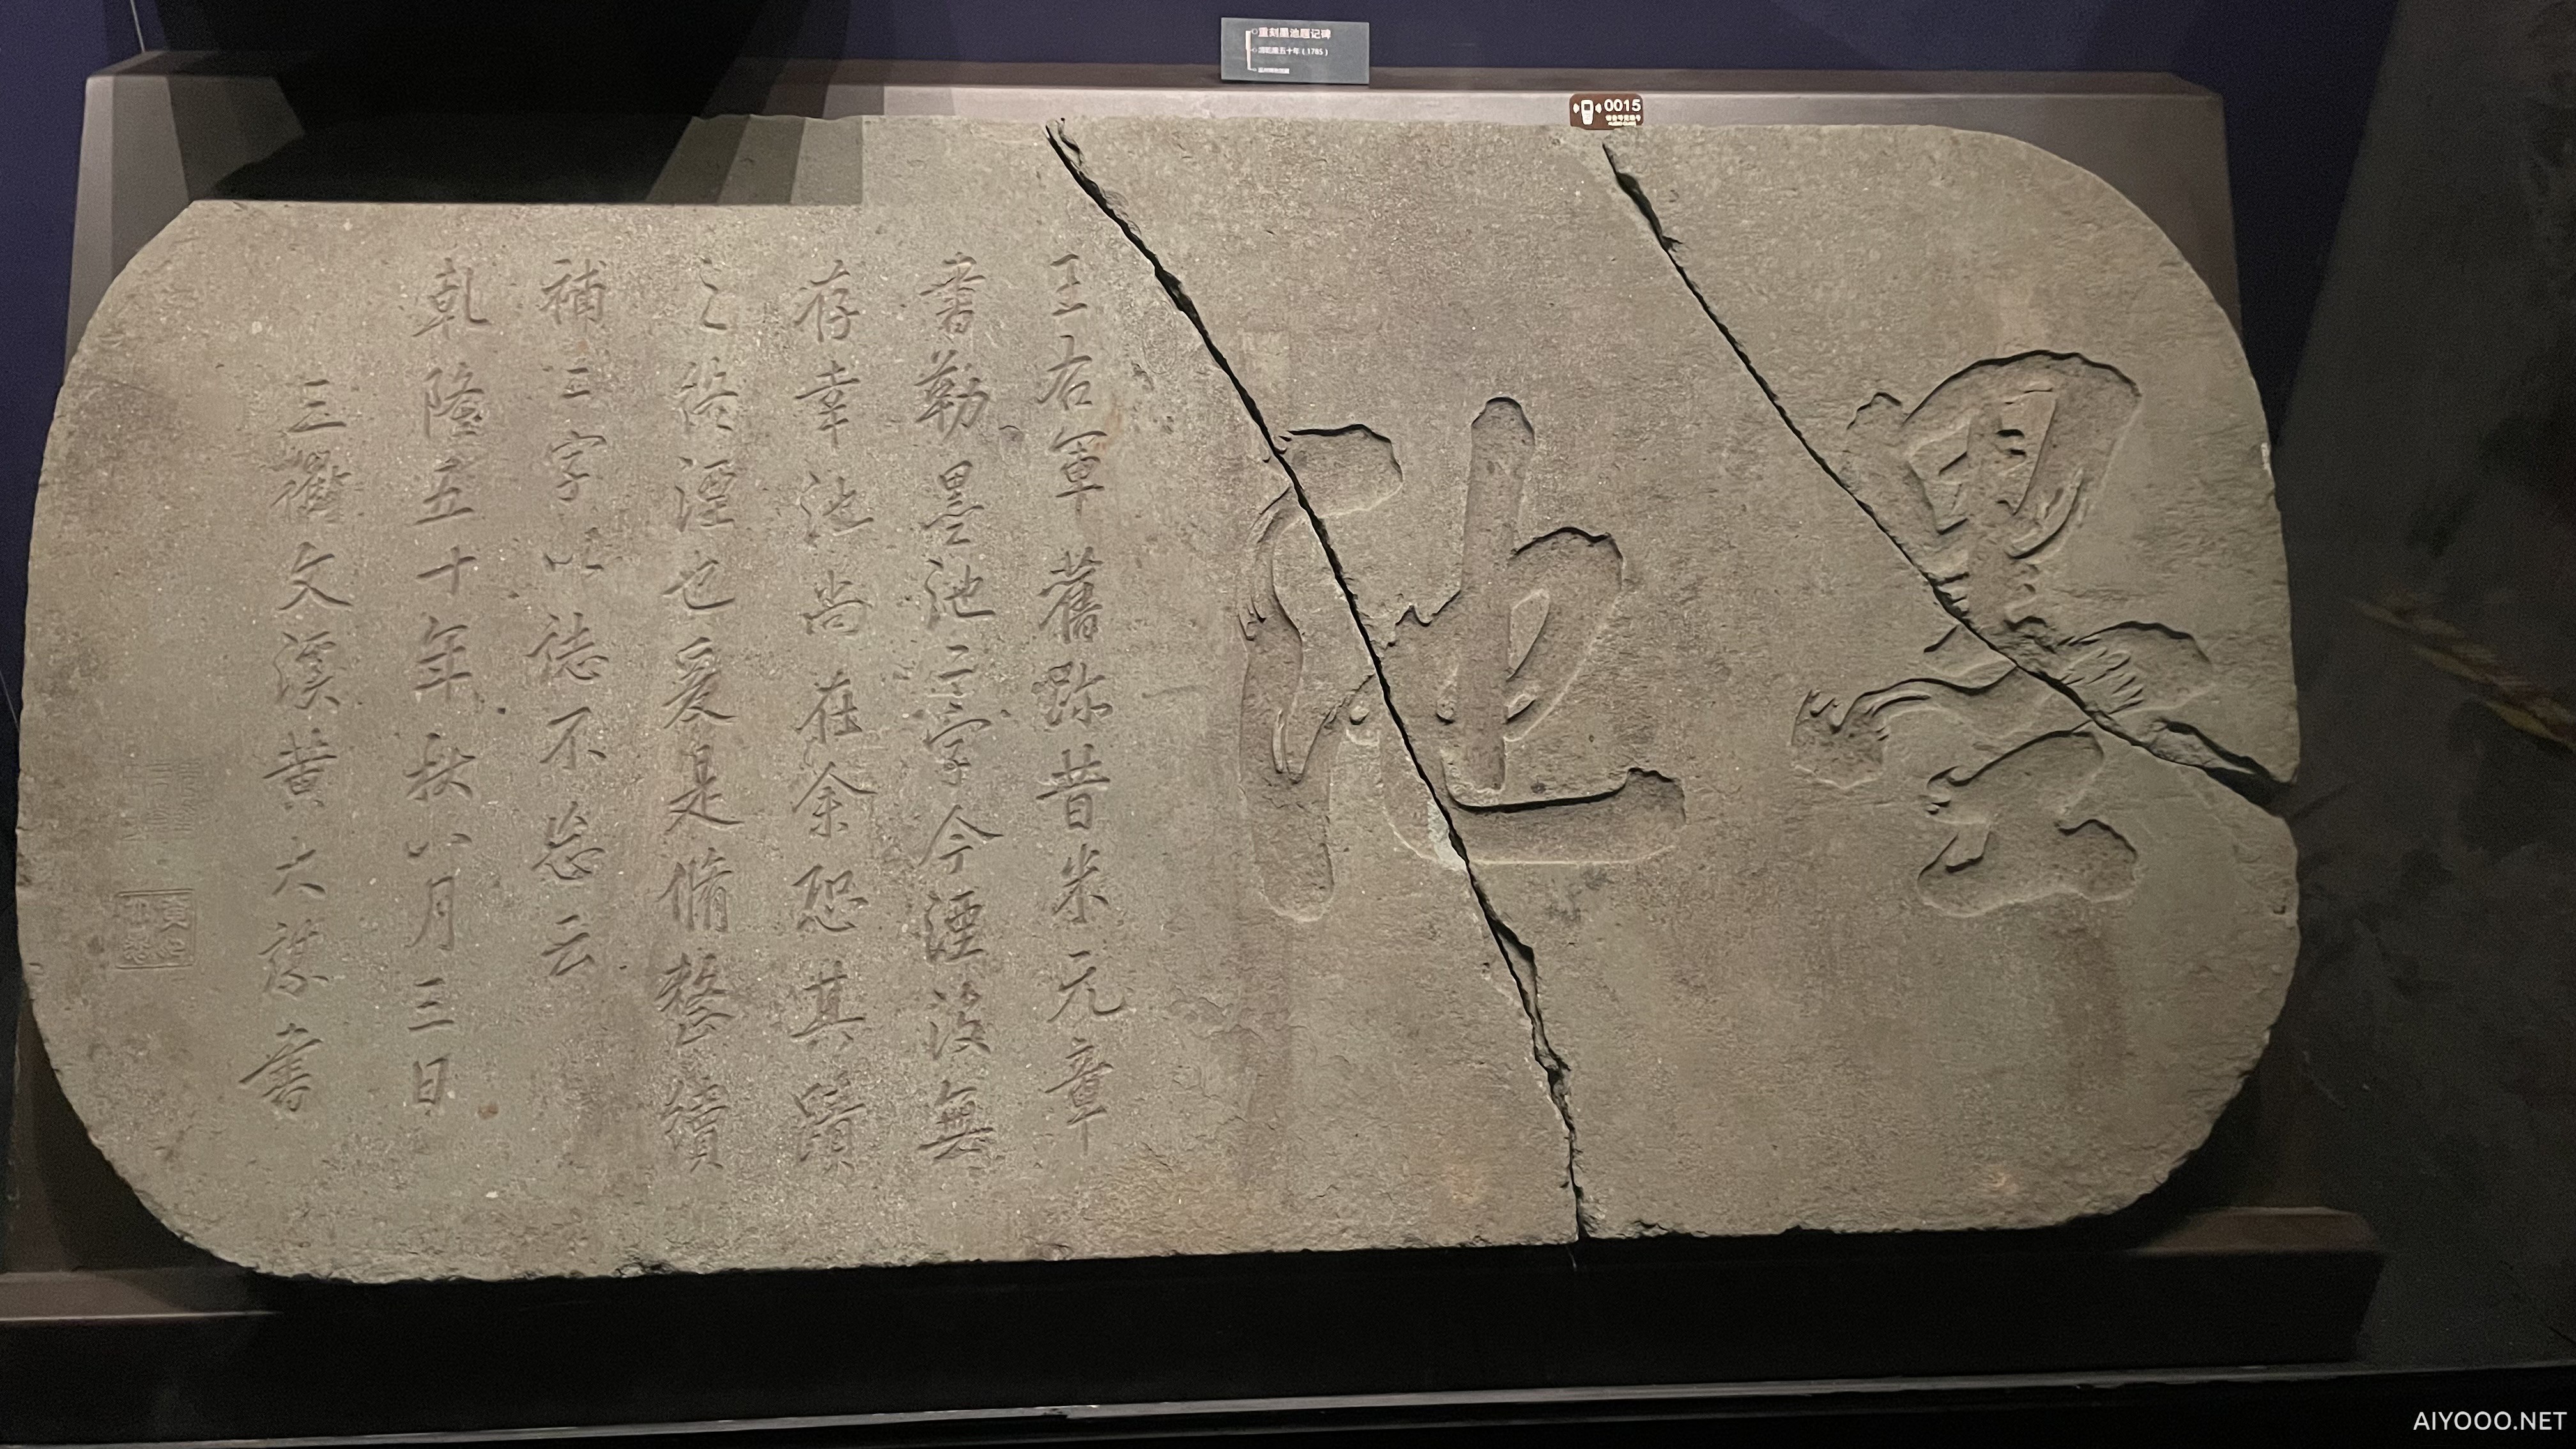 重刻墨池题记碑
清乾隆五十年（1785）
0015
墨池
王右軍舊跡昔米元章
書勒墨池二字今湮沒無
存幸池尚在余恐其蹟
之終湮也爰是脩整續
補二字以誌不忘云
乾隆五十年秋八月三日
三衢文溪黃大謀書
AIYOOO.NET